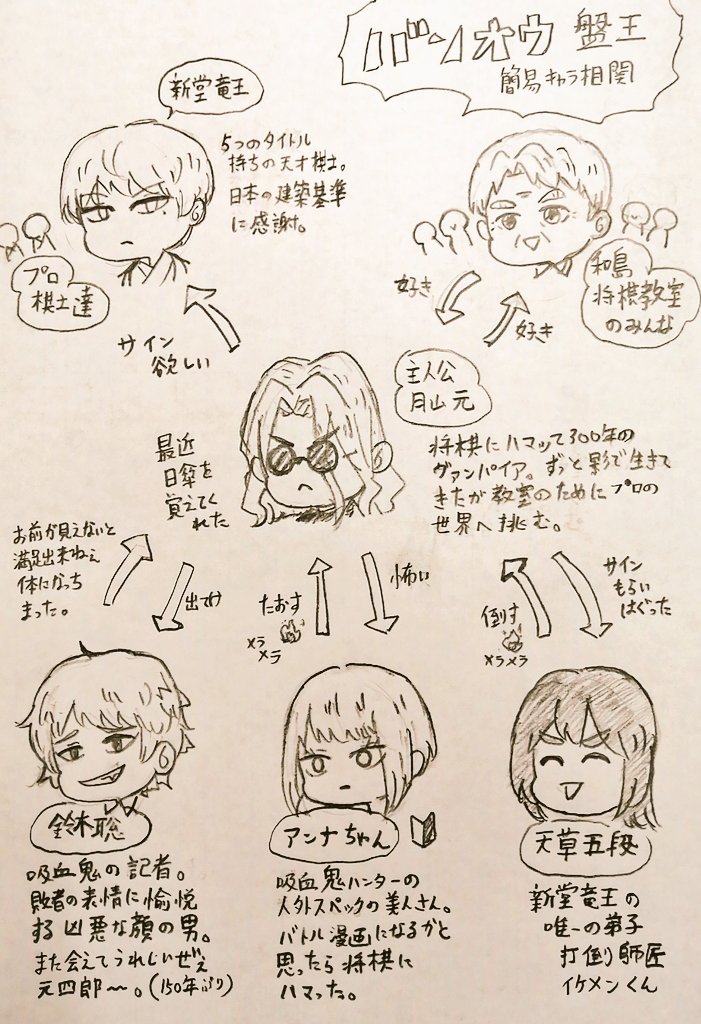 バンオウ 盤王
簡易キャラ相関
新堂竜王
5つのタイトル
持ちの天才棋士。
日本の建築基準
に感謝。
プロ
棋士達
和島
将棋教室
のみんな
好き
好き
サイン
欲しい
主人公
月山 元
最近
日傘を
覚えてく
れた
将棋にハマッて300年の
ヴァンパイア。ずっと影で生きて
きたが教室のためにプロの
世界へ挑む。
お前が見えないと
満足出来ねぇ
体になっち
まった。
出てけ
たおす
メラ
メラ
怖い
倒す
メラメラ
サイン
もらい
はぐった
鈴木聡
吸血鬼の記者。
敗者の表情に愉悦
する凶悪な顔の男。
また会えてうれしいぜぇ
元四郎〜。(150年ぶり)
アンナちゃん
吸血鬼ハンターの
人外スペックの美人さん。
バトル漫画になるかと
思ったら将棋に
ハマった。
天草五段
新堂竜王の
唯一の弟子
打倒師匠
イケメンくん